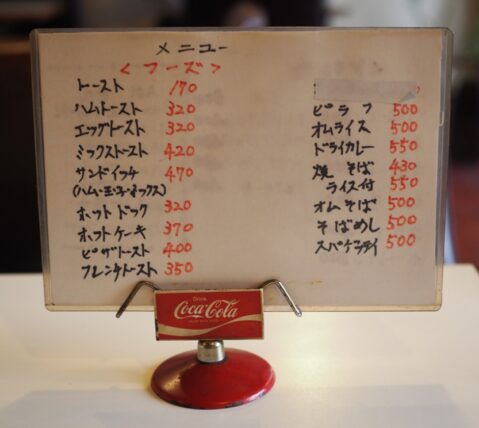 メニュー
<フーズ>
トースト 170
ハムトースト 320
エッグトースト 320
ミックストースト 420
サンドイッチ 470
(ハム・玉子・ミックス)
ホットドック 320
ホットケーキ 370
ピザトースト 400
フレンチトースト 350
ピラフ 500
オムライス 500
ドライカレー 550
焼そば 430
ライス付 550
オムそば 500
そばめし 500
スパゲッティ 500
Drink
Coca-Cola